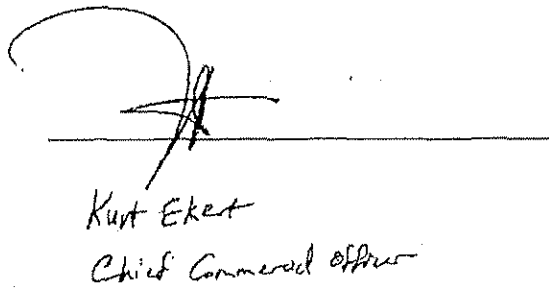 Kurt Ekert
Chief Commercial Officer